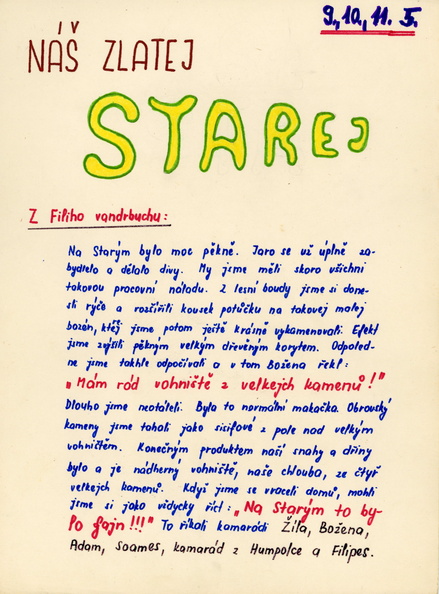 9., 10., 11. 5.
NÁŠ ZLATEJ
STAREJ
Z Filiho vandrbuchu:
Na Starým bylo moc pěkně. Jaro se už úplně za-
bydlelo a dělalo divy. My jsme měli skoro všichni
takovou pracovní náladu. Z lesní boudy jsme si done-
sli rýče a rozšířili kousek potůčku na takovej malej
bazén, ktěj jsme potom ještě krásně vykamenovali. Efekt
jsme zvýšili pěkným velkým dřevěným korytem. Odpoled-
ne jsme takhle odpočívali a v tom Božena řekl:
„Mám rád vohniště z velkejch kamenů!"
Dlouho jsme neotáleli. Byla to normální makačka. Obrovský
kameny jsme tahali jako sisifové z pole nad velkým
vohništěm. Konečným produktem naší snahy a dřiny
bylo a je nádherný vohniště, naše chlouba, ze čtyř
velkejch kamenů. Když jsme se vraceli domů, mohli
jsme si jako vždycky říct: „Na Starým to by-
lo fajn!!!" To říkali kamarádi Žíla, Božena,
Adam, Soames, kamarád z Humpolce a Filipes.